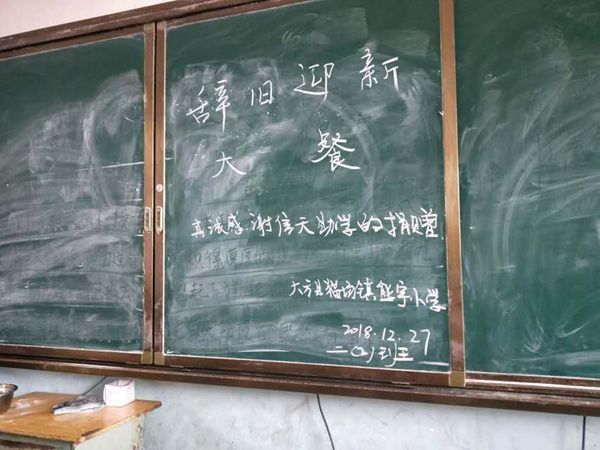 辞旧迎新
大餐
感谢信天助学的捐赠
大方县猫场镇能宇小学
2018.12.27
二(2)班